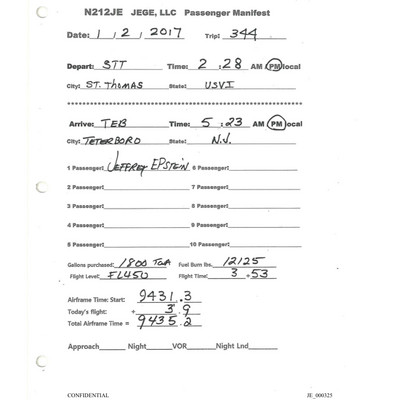 N212JE JEGE, LLC Passenger Manifest
Date: 1 / 2 / 2017 Trip: 344
Depart: STT Time: 2 : 28 AM PM local
City: ST. THOMAS State: USVI
Arrive: TEB Time: 5 : 23 AM PM local
City: TETERBORO State: N.J.
1 Passenger: JEFFREY EPSTEIN 6 Passenger:
2 Passenger: 7 Passenger:
3 Passenger: 8 Passenger:
4 Passenger: 9 Passenger:
5 Passenger: 10 Passenger:
Gallons purchased: 1800 Fuel Burn lbs. 12125
Flight Level: FL450 Flight Time: 3 + 53
Airframe Time: Start: 9431.3
Today's flight: + 3.9
Total Airframe Time = 9435.2
Approach Night VOR Night Lnd
CONFIDENTIAL JE_000325